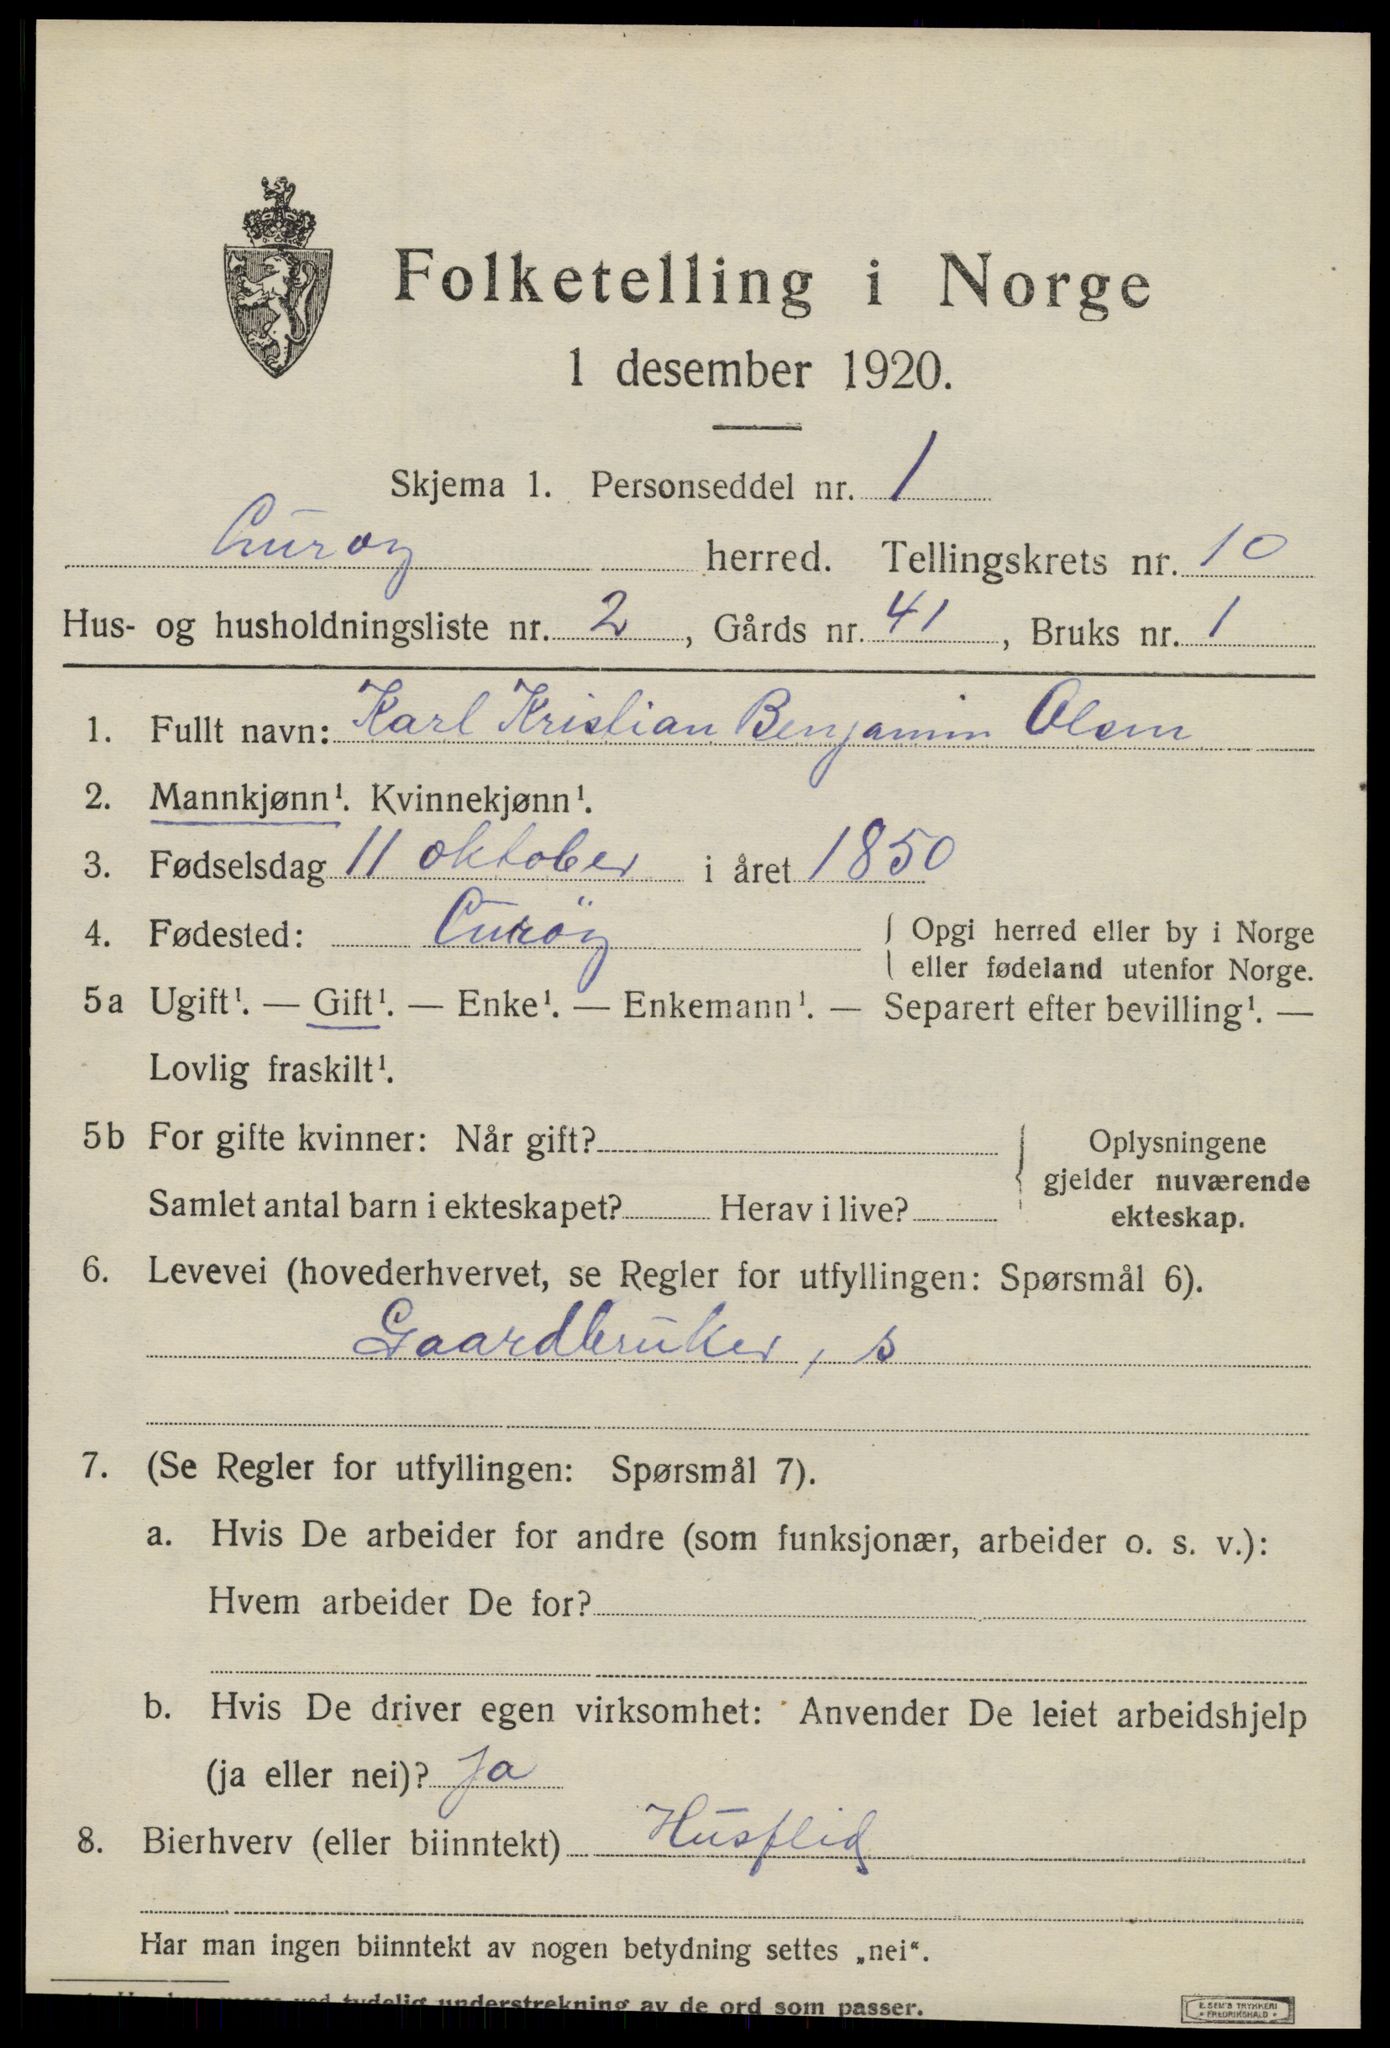 Folketelling i Norge
1 desember 1920.
Skjema 1. Personseddel nr. 1
Lurøy herred. Tellingskrets nr. 10
Hus- og husholdningsliste nr. 2, Gårds nr. 41, Bruks nr. 1
1. Fullt navn: Karl Kristian Benjamin Olsen
2. Mannkjønn¹. Kvinnekjønn¹.
3. Fødselsdag 11 oktober i året 1850
4. Fødested: Luröy { Opgi herred eller by i Norge
eller fødeland utenfor Norge.
5a Ugift¹. — Gift¹. — Enke¹. — Enkemann¹. — Separert efter bevilling¹. —
Lovlig fraskilt¹.
5b For gifte kvinner: Når gift? { Oplysningene
gjelder nuværende
Samlet antal barn i ekteskapet? Herav i live? ekteskap.
6. Levevei (hovederhvervet, se Regler for utfyllingen: Spørsmål 6).
Gaardbruker, s
7. (Se Regler for utfyllingen: Spørsmål 7).
a. Hvis De arbeider for andre (som funksjonær, arbeider o. s. v.):
Hvem arbeider De for?
b. Hvis De driver egen virksomhet: Anvender De leiet arbeidshjelp
(ja eller nei)? Ja
8. Bierhverv (eller biinntekt) Husflid
Har man ingen biinntekt av nogen betydning settes „nei“.
ved tydelig understrekning av de ord som passer.
E. SEM'S TRYKKERI
FREDRIKSHALD